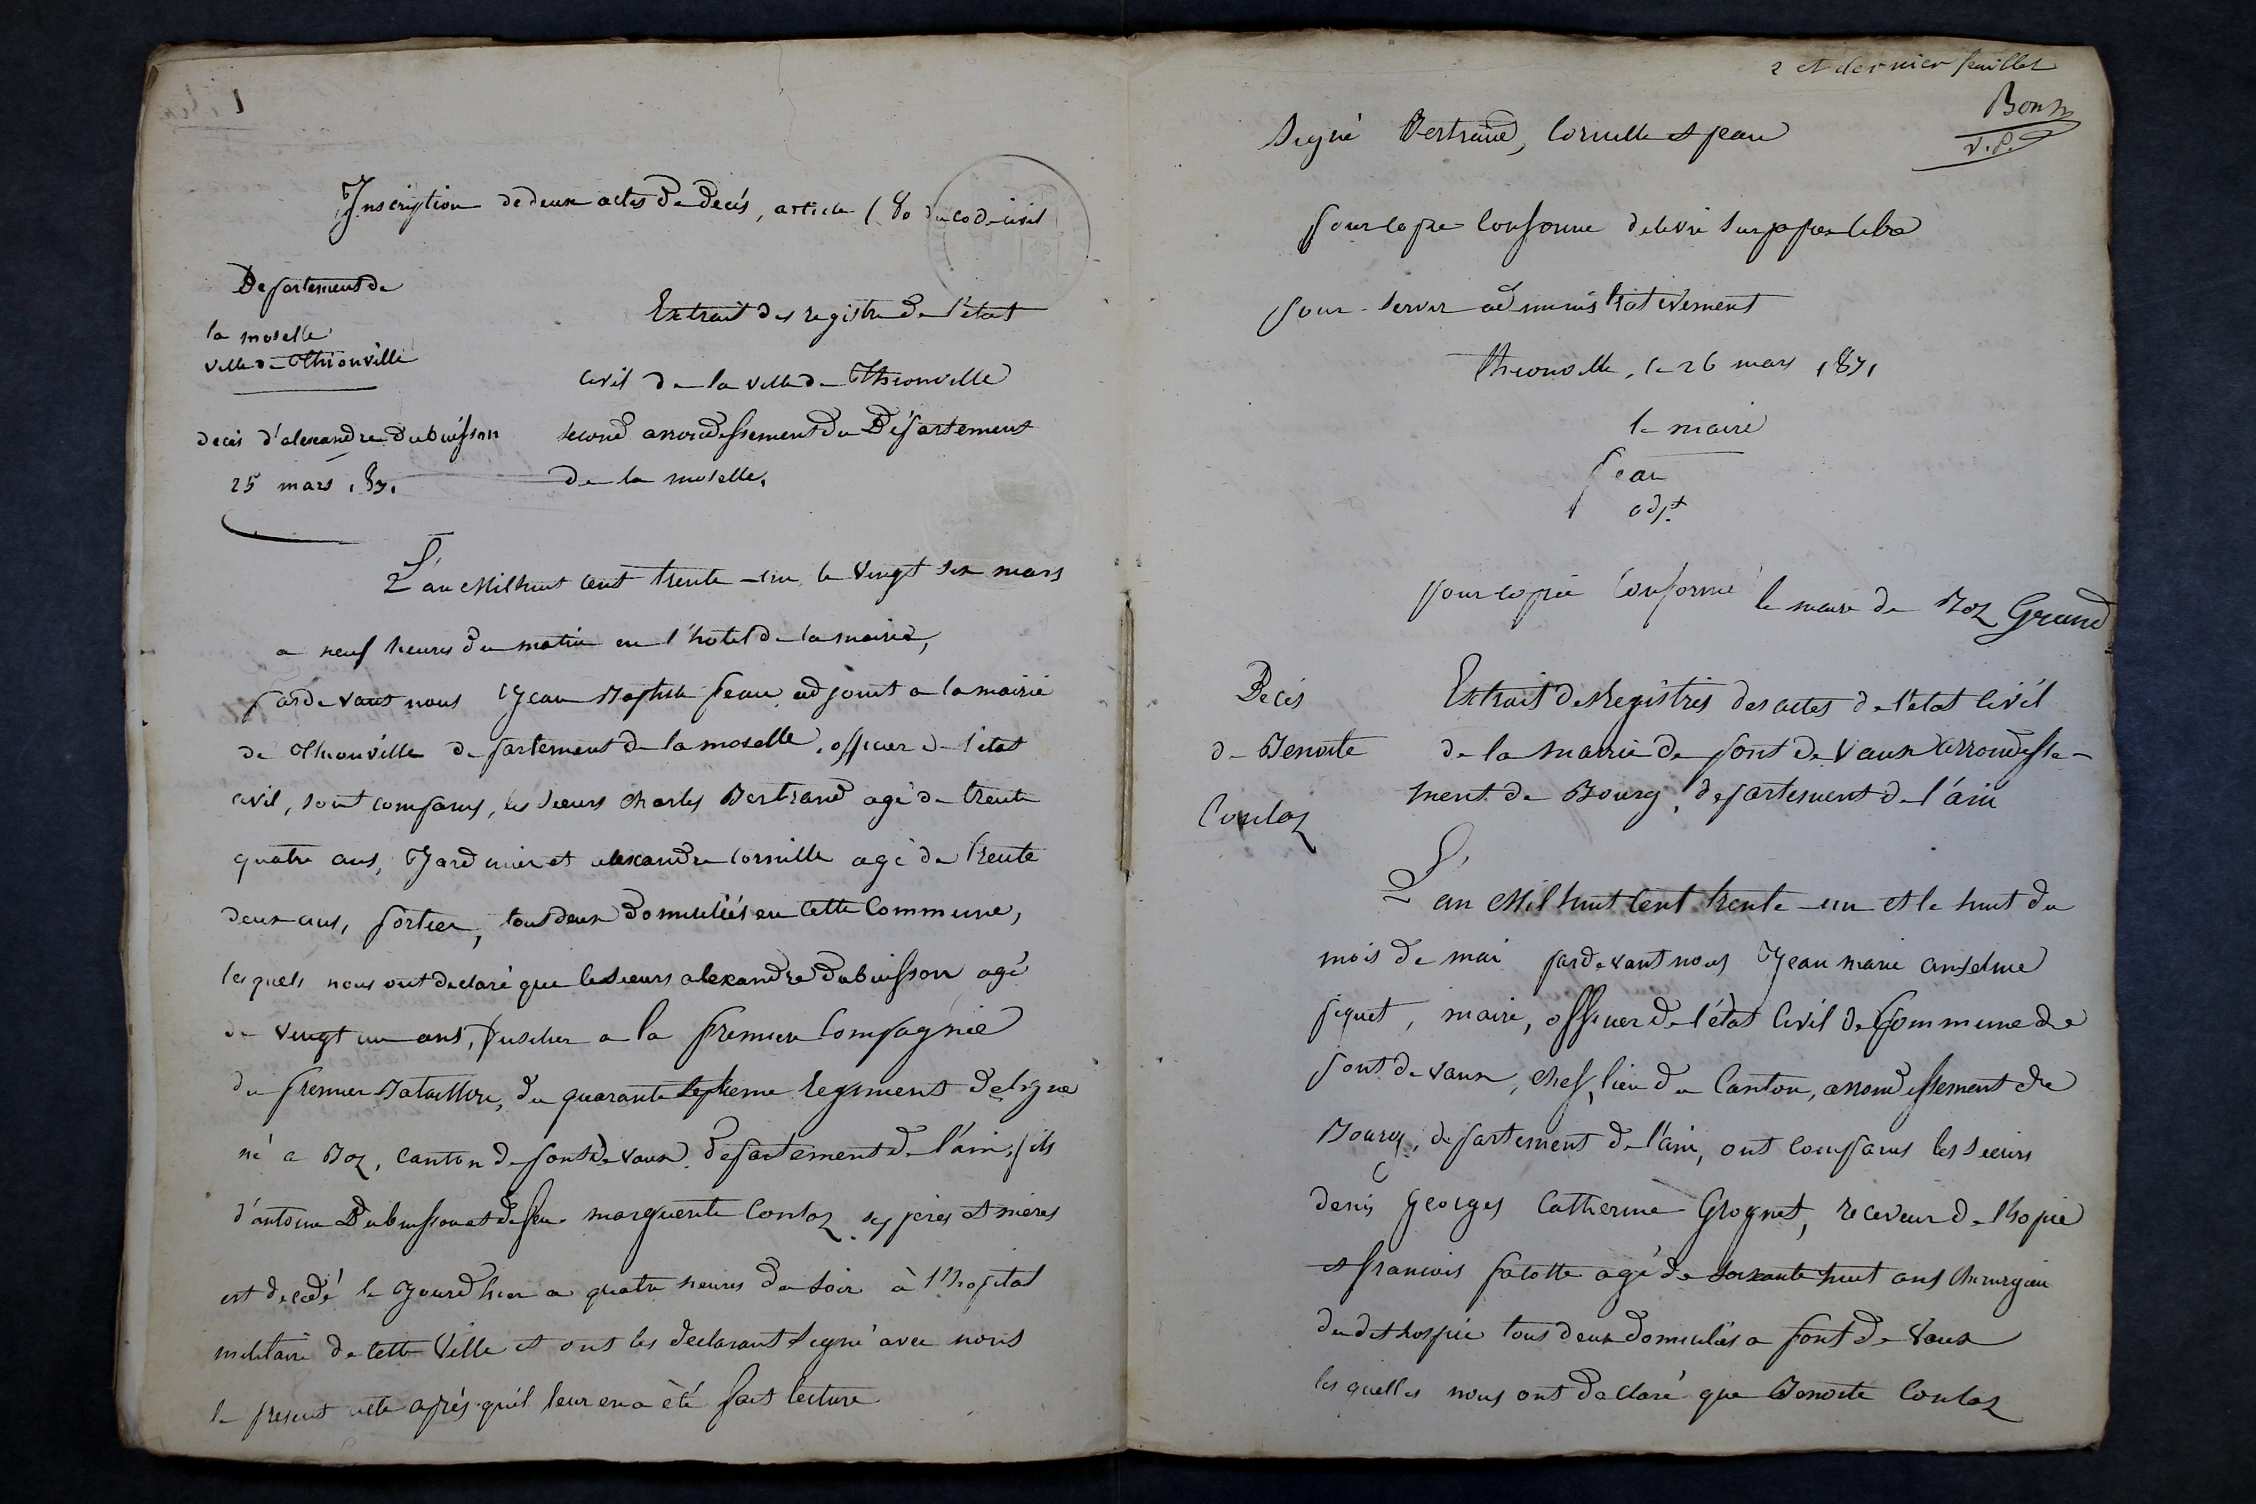 Inscription de deux actes de decés, article 80 du code civil
Departement de
la moselle
ville de Thionville
decés d'alexandre Dubuisson
25 mars 1831
Extrait des registre de l'état
civil de la ville de Thionville
second arrondissement du Département
de la moselle.
L'an Mil huit cent trente-un le vingt six mars
a neuf heures du matin en l'hotel de la mairie,
pardevant nous Jean Baptiste peau adjoint a la mairie
de Thionville departement de la moselle, officier de l'état
civil, sont comparus, les sieurs Charles Bertrand agé de trente
quatre ans, Jardinier et alexandre Cornille agé de trente
deux ans, portier, tous deux domiciliés en cette Commune,
lesquels nous ont declaré que le sieurs alexandre Dubuisson agé
de vingt un ans, fusilier a la premier Compagnie
du premier Bataillon, du quarante septieme regiment de ligne
né a Boz, canton de pont de vaux departement de l'ain, fils
d'antoine Dubuisson et de feue marguerite Conloz ses péres et méres
est decedé le Jourd'hier a quatre heures du soir à l'hopital
militaire de cette Ville et ont les declarant signé avec nous
le present acte aprés qu'il leur en a été fait lecture
2 et dernier feuillet
Signé Bertrand, Cornille et peau
pour copie Conforme delivré sur papier libre
pour servir administrativement
Thionville, le 26 mars 1831
le maire
peau
adjt
pour copie Conforme le maire de Boz Grand
Decés
de Benoite
Conloz
Extrait des Registres des actes de l'etat Civil
de la mairie de pont de Vaux arrondisse-
ment de Bourg, departement de l'ain
L'an Mil huit Cent trente-un et le huit du
mois de mai pardevant nous Jean marie anselme
piquet, maire, officier de l'état Civil de Commune de
pont de vaux, chef lieu de Canton, arrondissement de
Bourg, departement de l'ain, ont comparus les sieurs
denis Georges Catherine Grognet, receveur de l'hopice
et francois palotte agé de soixante huit ans Chirurgien
dudit hospice tous deux domiciliés a pont de Vaux
lesquelles nous ont declaré que Benoite Conloz